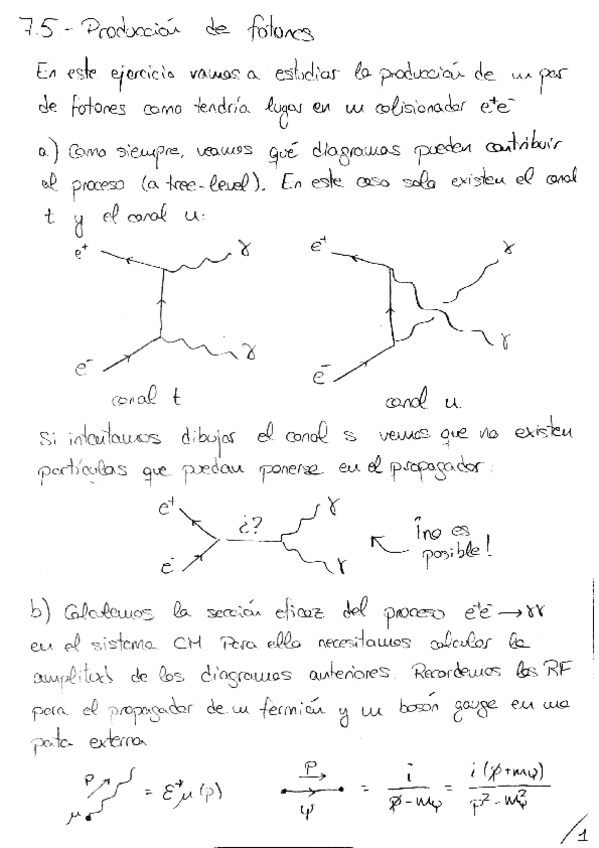 7.5.- Producción de fotones
En este ejercicio vamos a estudiar la producción de un par
de fotones como tendría lugar en un colisionador e⁺e⁻
a) Como siempre, veamos qué diagramas pueden contribuir
al proceso (a tree-level). En este caso solo existen el canal
t y el canal u:
e⁺ γ e⁺ γ
e⁻ γ e⁻ γ
canal t canal u
Si intentamos dibujar el canal s vemos que no existen
partículas que puedan ponerse en el propagador:
e⁺ ¿? γ ¡no es
e⁻ γ posible!
b) Calculemos la sección eficaz del proceso e⁺e⁻ → γγ
en el sistema CM. Para ello necesitamos calcular la
amplitud de los diagramas anteriores. Recordemos las RF
para el propagador de un fermión y un bosón gauge en una
pata externa
p μ = ε*μ(p) p ψ = i / (p̸ - mψ) = i(p̸ + mψ) / (p² - m²ψ)
/1